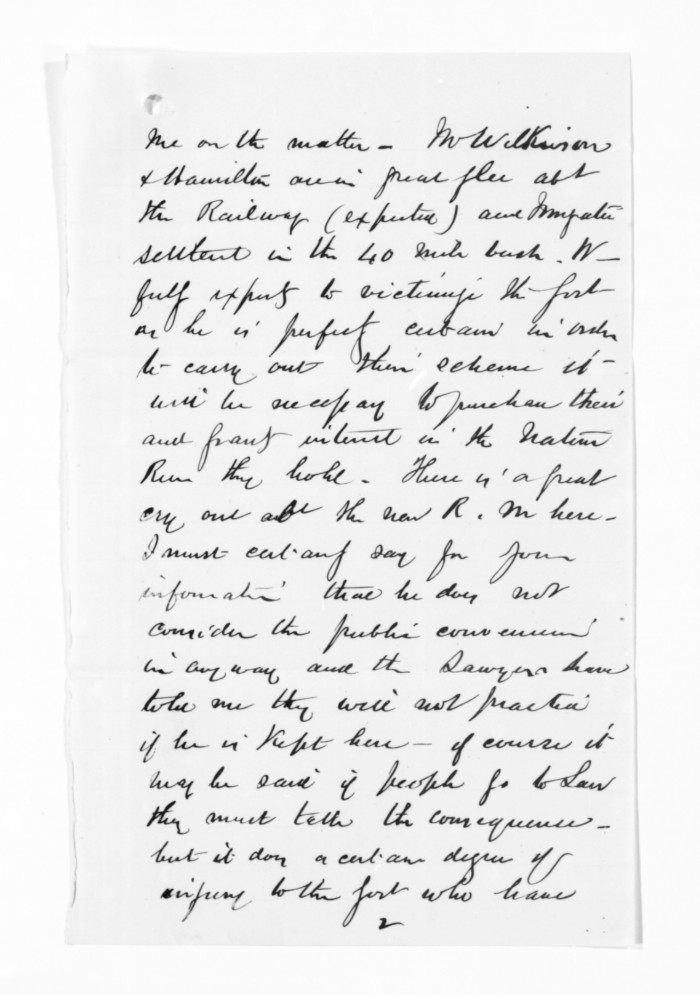 me on the matter - Mr Wilkinson
& Hamilton are in great glee abt
the Railway (expected) and
settlemt in the 40 mile bush. W -
fully expects to victimize the Govt
as he is perfectly certain in order
to carry out their scheme it
will be necessary to purchase their
and Grants interest in the Native
Run they hold. There is a great
cry out abt the new R. M here -
I must certainly say for your
information that he does not
consider the public convenience
in any way and the Lawyers have
told me they will not practice
if he is kept here - of course it
may be said if people go to Law
they must take the consequence -
but it does a certain degree of
injury to the Govt who have
2